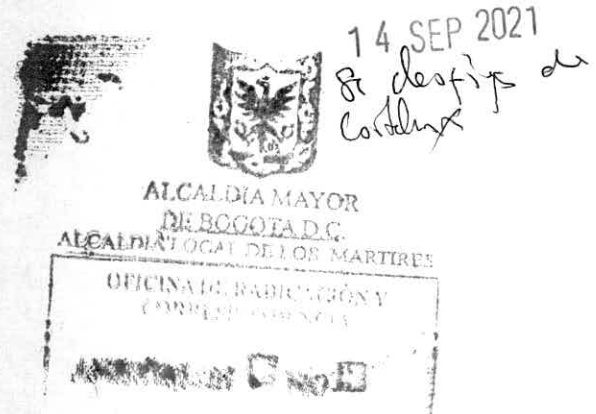 14 SEP 2021
Se desfija de
ALCALDIA MAYOR
DE BOGOTA D.C.
ALCALDIA LOCAL DE LOS MARTIRES
OFICINA DE RADICACIÓN Y
CORRESPONDENCIA
NO